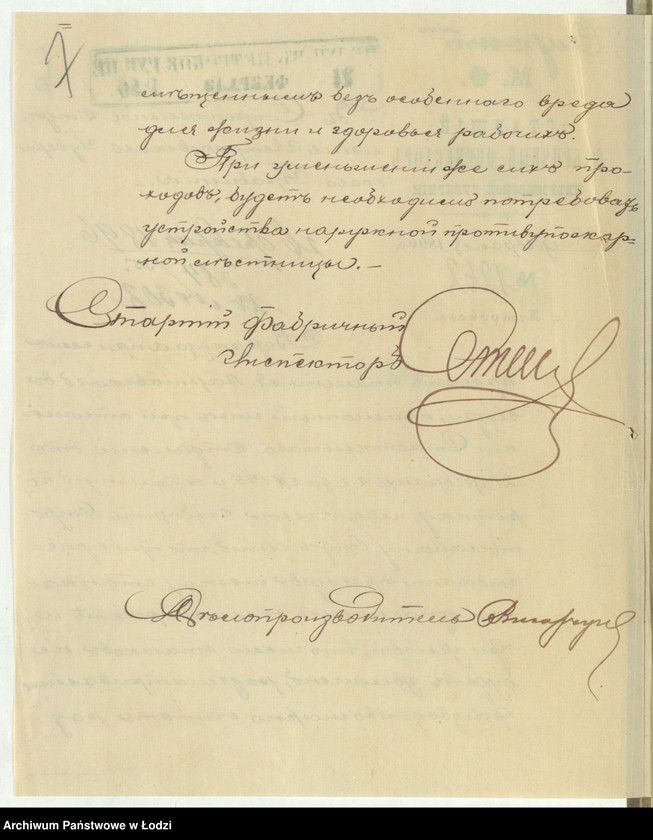 смѣщеннымъ безъ особеннаго вреда
для жизни и здоровья рабочихъ.
При уменьшеніи же сихъ про-
ходовъ, будетъ необходимо потребовать
устройства наружной противупожар-
ной лѣстницы. —
Старшій Фабричный
Инспекторъ
Дѣлопроизводитель
Archiwum Państwowe w Łodzi